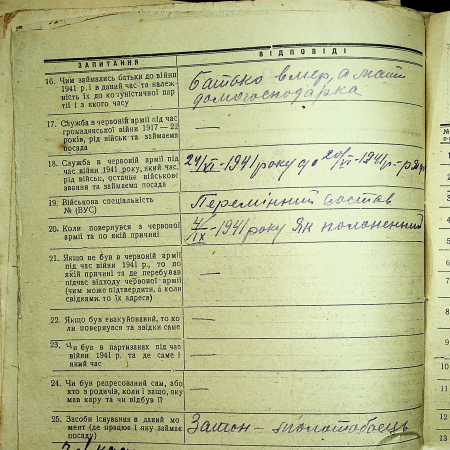 ЗАПИТАННЯ
ВІДПОВІДІ
16. Чим займались батьки до війни
1941 р. і в даний час та належ-
ність їх до комуністичної пар-
тії і з якого часу
батько вмер, а мати
домогосподарка
17. Служба в червоній армії під час
громадянської війни 1917—22
років, рід військ та займаема
посада
—
18. Служба в червоній армії під
час війни 1941 року, який час,
рід військ, останнє військове
звання та займаема посада
24/VI-1941 року до 20/VI-1941 р.
19. Військова спеціальність
№ (ВУС)
Перемінний состав
20. Коли повернувся з червоної
армії та по якій причині
4/IX-1941 року Як полоненний
21. Якщо не був в червоній армії
під час війни 1941 р., то по
якій причині та де перебував
підчас відходу червоної армії
(чим може підтвердити, а коли
свідками, то їх адреса)
—
22. Якщо був евакуйований, то ко-
ли повернувся та звідки саме
—
23. Чи був в партизанах під час
війни 1941 р. та де саме і
який час
—
24. Чи був репресований сам, або
хто з родичів, коли і защо, яку
мав кару та чи відбув її
—
25. Засоби існування в даний мо-
мент (де працює і яку займає
посаду)
Затон — молотобоець
10
11
12
13